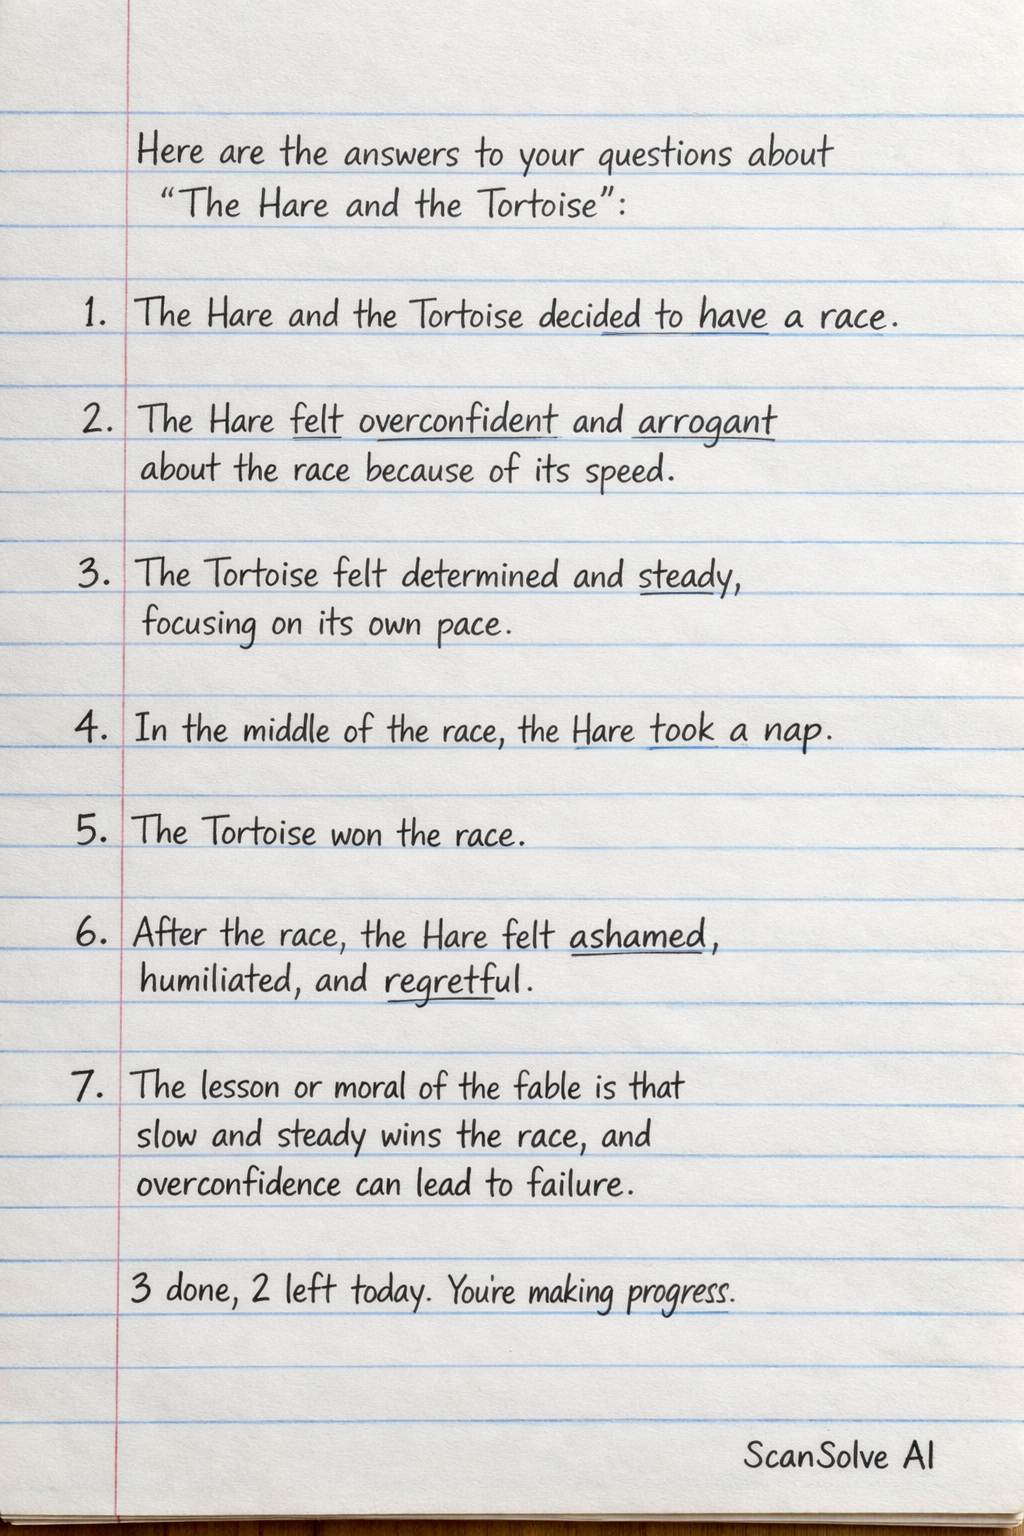 Here are the answers to your questions about
“The Hare and the Tortoise”:
1. The Hare and the Tortoise decided to have a race.
2. The Hare felt overconfident and arrogant
about the race because of its speed.
3. The Tortoise felt determined and steady,
focusing on its own pace.
4. In the middle of the race, the Hare took a nap.
5. The Tortoise won the race.
6. After the race, the Hare felt ashamed,
humiliated, and regretful.
7. The lesson or moral of the fable is that
slow and steady wins the race, and
overconfidence can lead to failure.
3 done, 2 left today. You're making progress.
ScanSolve AI